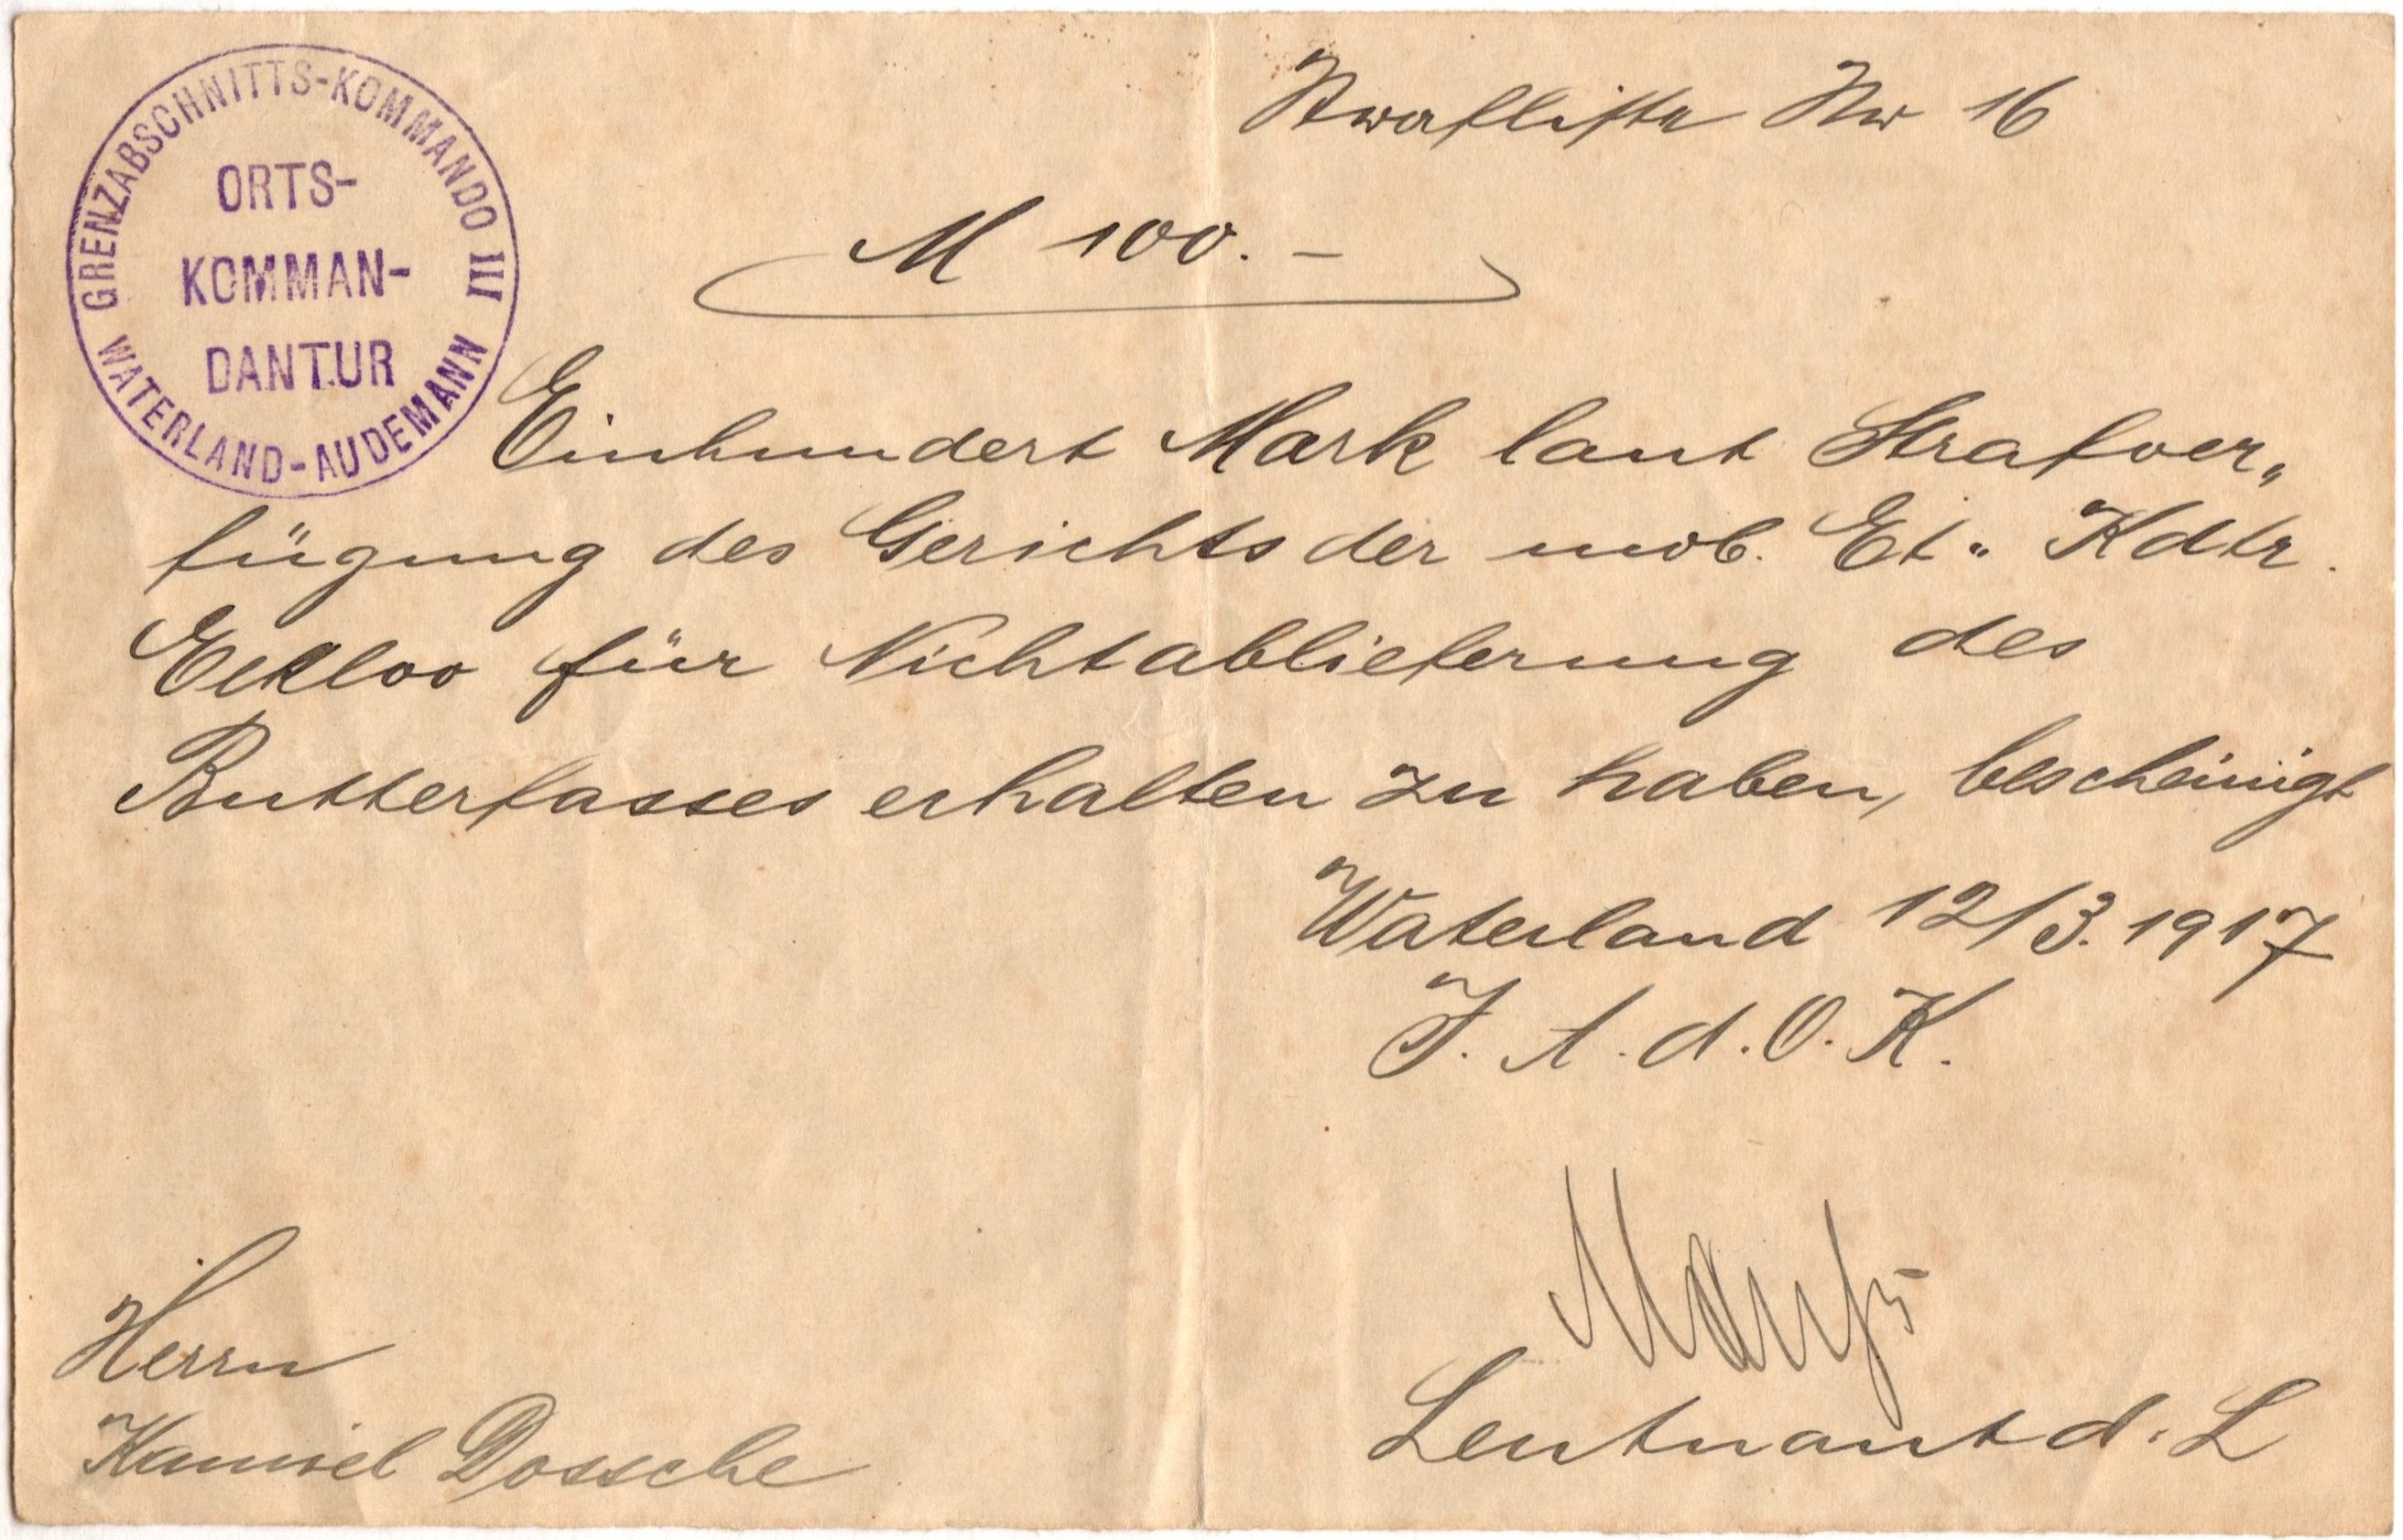 GRENZABSCHNITTS-KOMMANDO III
ORTS-
KOMMAN-
DANTUR
WATERLAND-AUDEMANN
Strafliste Nr 16
M 100.-
Einhundert Mark laut Strafver„
fügung des Gerichts der mob. Et.. Kdtr.
Eekloo für Nichtablieferung des
Butterfasses erhalten zu haben, bescheinigt
Waterland 12/3. 1917
I. A. d. O. K.
Leutnant d. L
Herrn
Kamiel Dossche